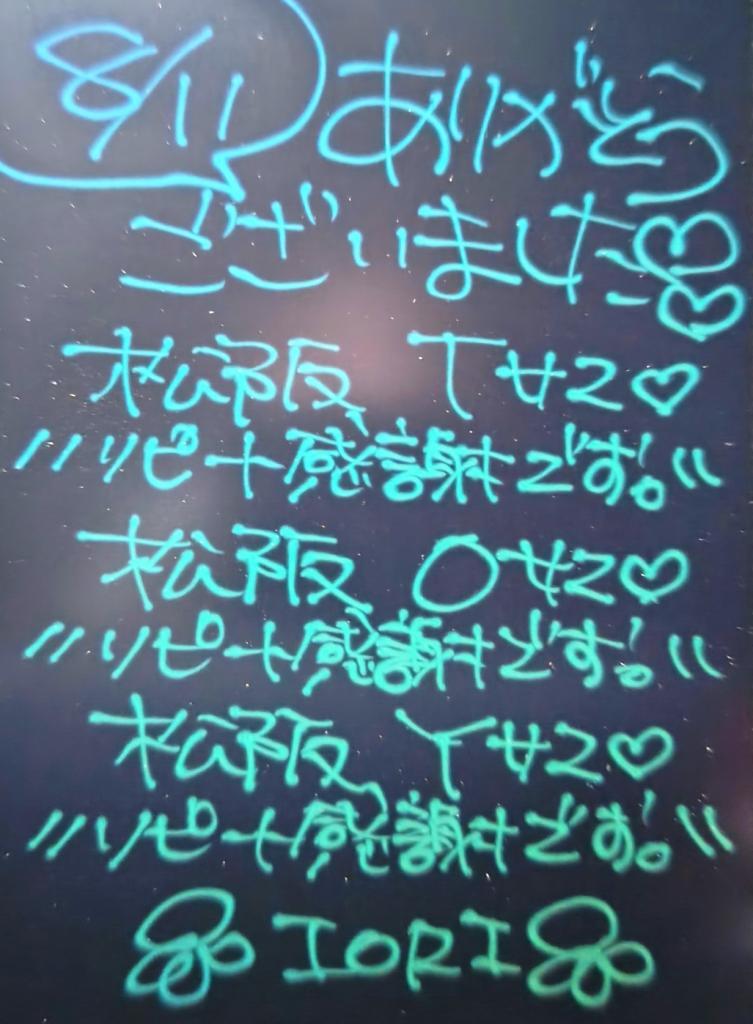 8/11 ありがとう
ございました♡♡
松阪 Tサン♡
リピート感謝です!。
松阪 Oサン♡
リピート感謝です!。
松阪 Yサン♡
リピート感謝です!。
IORI